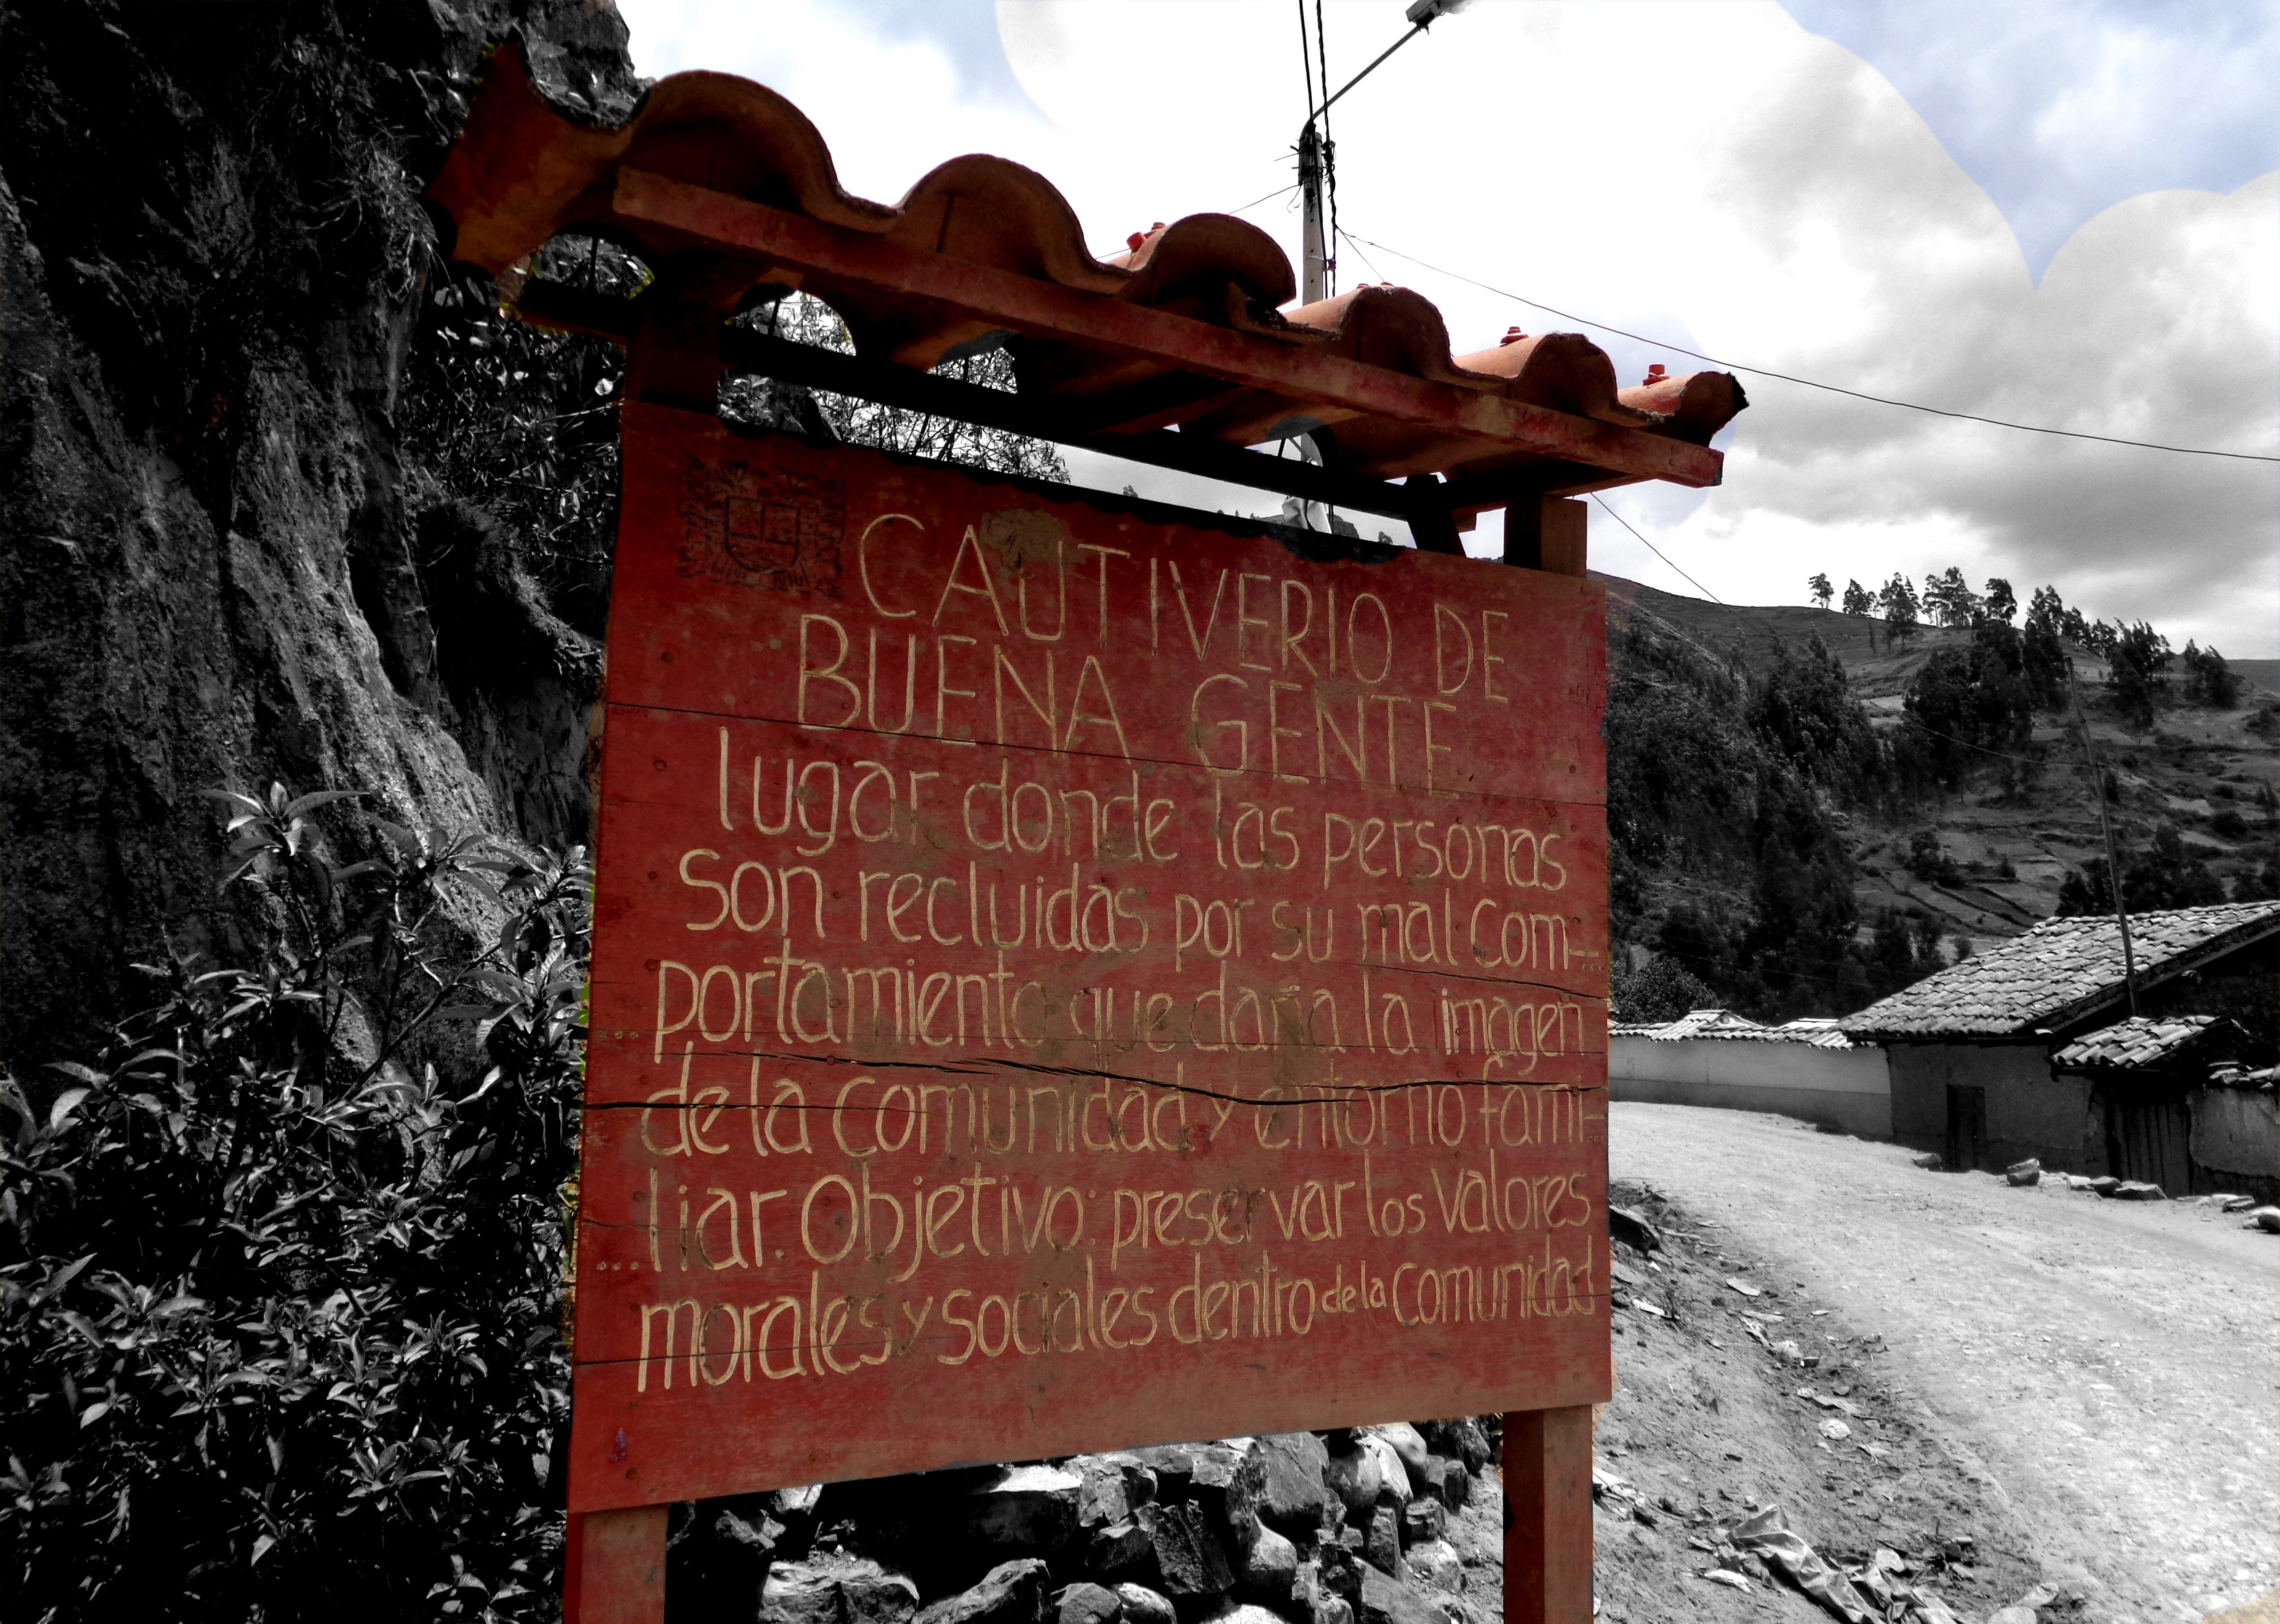 CAUTIVERIO DE
BUENA GENTE
lugar donde las personas
son recluidas por su mal com-...
...portamiento que daña la imagen
de la comunidad y entorno fami-...
...liar. Objetivo: preservar los valores
morales y sociales dentro de la comunidad